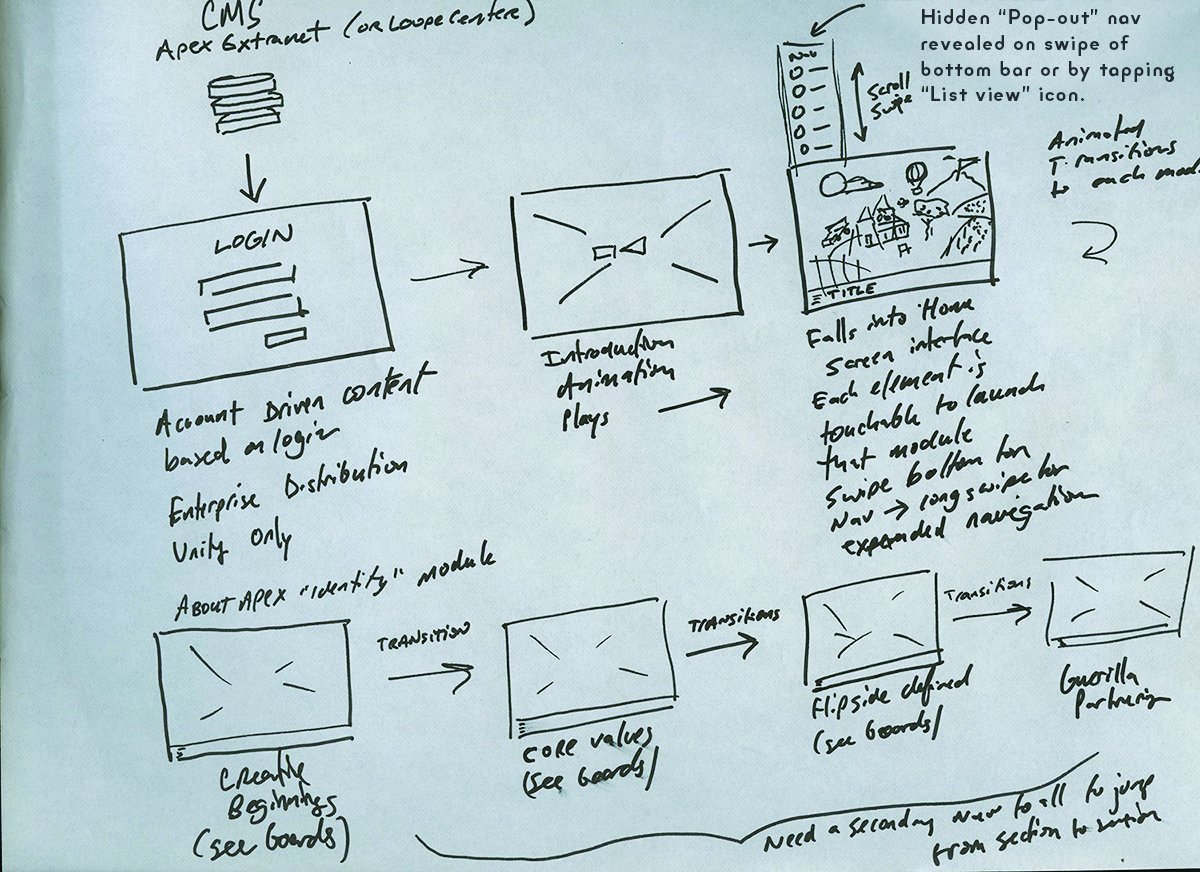 CMS
Apex Extranet (or Loupe Center)
Hidden “Pop-out” nav
revealed on swipe of
bottom bar or by tapping
“List view” icon.
Nav
Scroll
Swipe
Animated
Transitions
to each mod
LOGIN
TITLE
Account Driven content
based on login
Enterprise Distribution
Unity Only
Introduction
Animation
Plays
Falls into Home
Screen interface
Each element is
touchable to launch
that module
Swipe bottom for
Nav → long swipe for
expanded navigation
About Apex "identity" module
TRANSITION
TRANSITIONS
Transitions
Creative
Beginnings
(see boards)
Core values
(see boards)
Flipside defined
(see boards)
Guerilla
Partnering
Need a secondary Nav to all to jump
from section to section